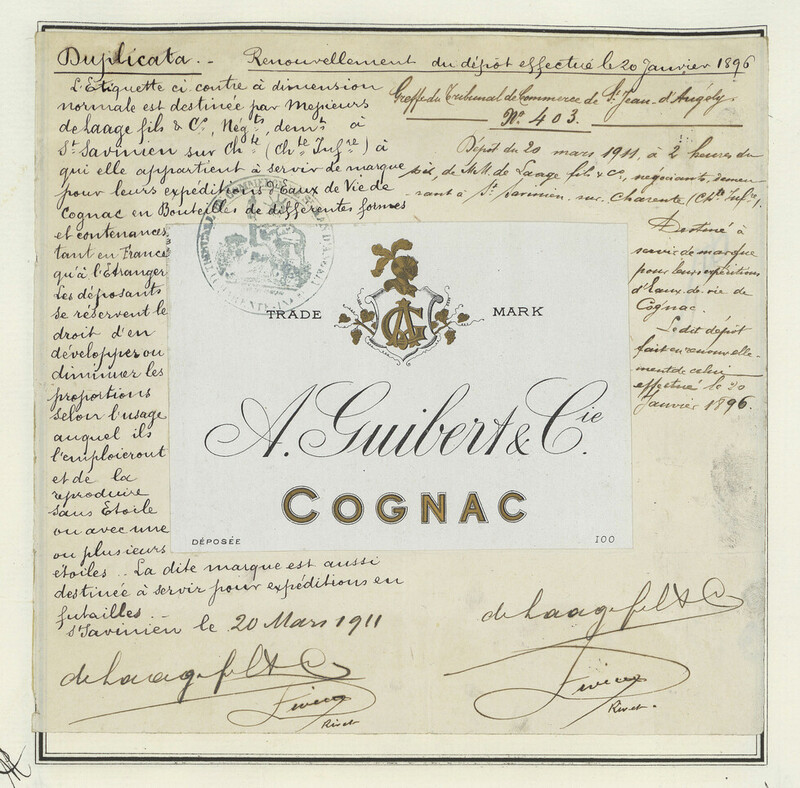 Duplicata. - Renouvellement du dépôt effectué le 20 Janvier 1896
L'Etiquette ci contre à dimension
normale est destinée par Messieurs
de Laage fils & Cº, Négts, demt à
St Savinien sur Chte (Chte Infre) à
qui elle appartient à servir de marque
pour leurs expéditions d'Eaux de Vie de
Cognac en Bouteilles de différentes formes
et contenances
tant en France
qu'à l'Etranger
Les déposants
se réservent le
droit d'en
développer ou
diminuer les
proportions
selon l'usage
auquel ils
l'emploieront
et de la
reproduire
sans Etoile
ou avec une
ou plusieurs
étoiles .. La dite marque est aussi
destinée à servir pour expéditions en
futailles ..
St Savinien le 20 Mars 1911
de Laage fils & Co
Rivet
Greffe du Tribunal de Commerce de St Jean-d'Angely.
Nº 403.
Dépôt du 20 mars 1911, à 2 heures du
soir, de M.M. de Laage fils & Cie, négociants, demeu-
rant à St Savinien sur Charente (Chte Infre).
Destiné à
servir de marque
pour leurs expéditions
d'Eaux-de-vie de
Cognac.
Le dit dépôt
fait en renouvelle-
ment de celui
effectué le 20
Janvier 1896.
TRADE MARK
AG
A. Guibert & Cie.
COGNAC
DÉPOSÉE 100
de Laage fils & Co
Rivet.